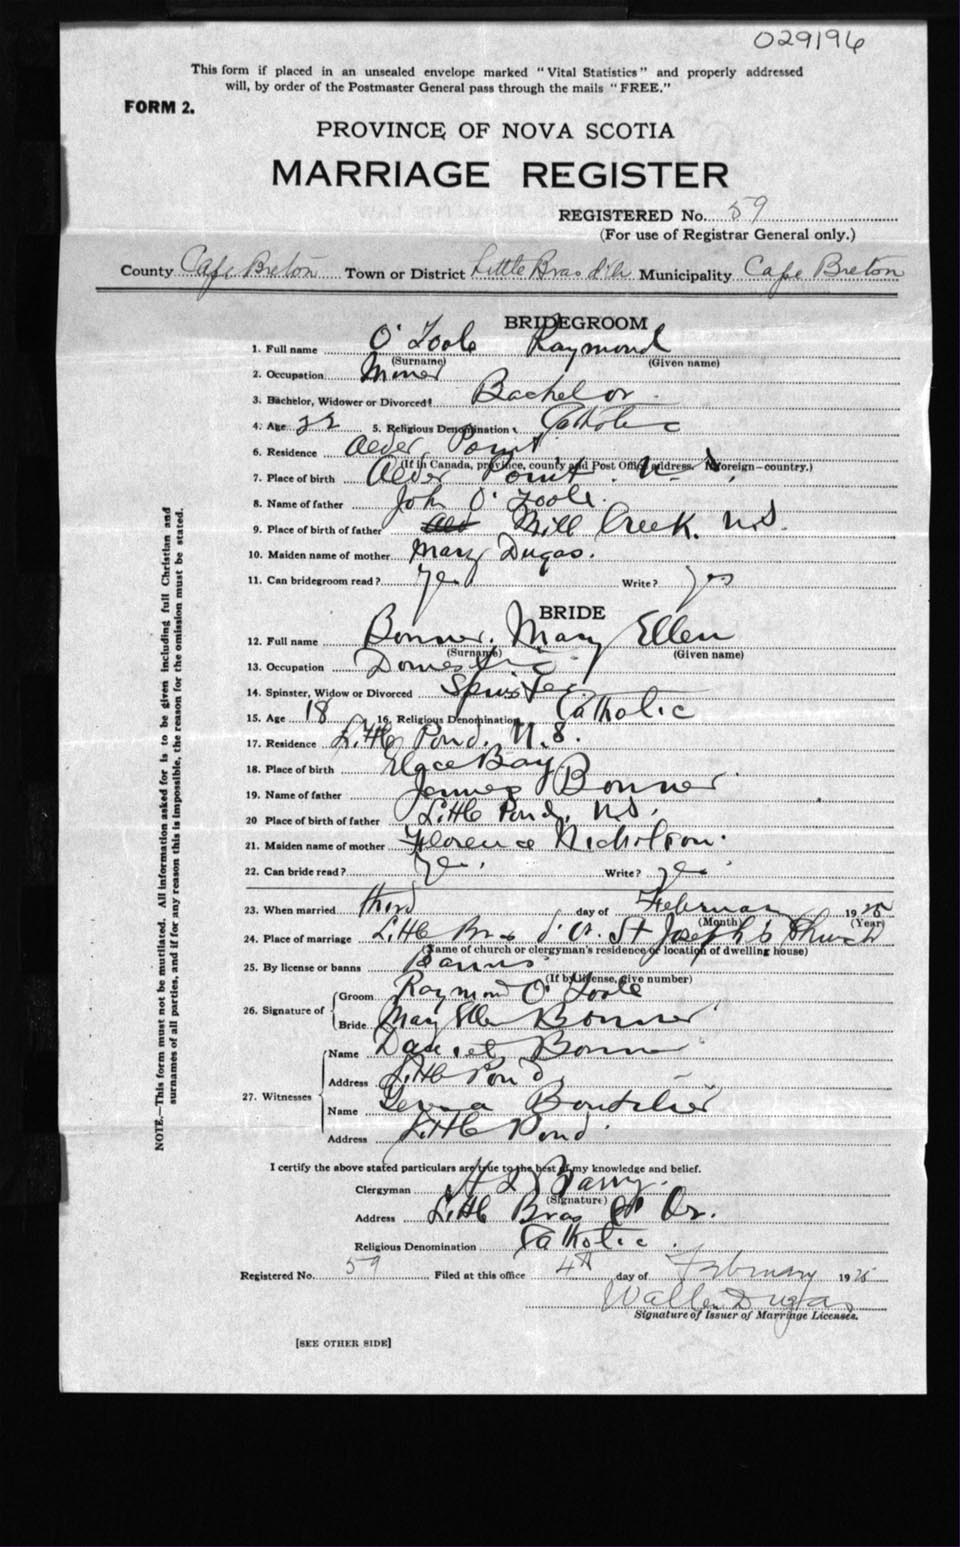 029196
This form if placed in an unsealed envelope marked "Vital Statistics" and properly addressed
will, by order of the Postmaster General pass through the mails "FREE."
FORM 2.
PROVINCE OF NOVA SCOTIA
MARRIAGE REGISTER
REGISTERED No. 59
(For use of Registrar General only.)
County Cape Breton Town or District Little Bras d'Or Municipality Cape Breton
BRIDEGROOM
1. Full name O'Toole Raymond
(Surname) (Given name)
2. Occupation Miner
3. Bachelor, Widower or Divorced? Bachelor
4. Age 22 5. Religious Denomination Catholic
6. Residence Alder Point
(If in Canada, province, county and Post Office address. If foreign—country.)
7. Place of birth Alder Point. N.S.
8. Name of father John O'Toole.
9. Place of birth of father Mill Creek. N.S.
10. Maiden name of mother Mary Dugas.
11. Can bridegroom read? Yes Write? Yes
BRIDE
12. Full name Bonner. Mary Ellen
(Surname) (Given name)
13. Occupation Domestic
14. Spinster, Widow or Divorced Spinster
15. Age 18 16. Religious Denomination Catholic
17. Residence Little Pond, N.S.
18. Place of birth Glace Bay
19. Name of father James Bonner
20 Place of birth of father Little Pond, N.S.
21. Maiden name of mother Florence Nicholson.
22. Can bride read? Yes. Write? Yes
23. When married third day of February 19
(Month) (Year)
24. Place of marriage Little Bras d'Or. St Joseph's Church
(Name of church or clergyman's residence or location of dwelling house)
25. By license or banns Banns
(If by license, give number)
26. Signature of Groom Raymond O'Toole
Bride Mary Ellen Bonner
27. Witnesses Name Daniel Bonner
Address Little Pond
Name Boutilier
Address Little Pond
I certify the above stated particulars are true to the best of my knowledge and belief.
Clergyman Barry.
(Signature)
Address Little Bras d'Or.
Religious Denomination Catholic.
Registered No. 59 Filed at this office 4th day of February 19
Dugas
Signature of Issuer of Marriage Licenses.
[SEE OTHER SIDE]
NOTE.—This form must not be mutilated. All information asked for is to be given including full Christian and
surnames of all parties, and if for any reason this is impossible, the reason for the omission must be stated.